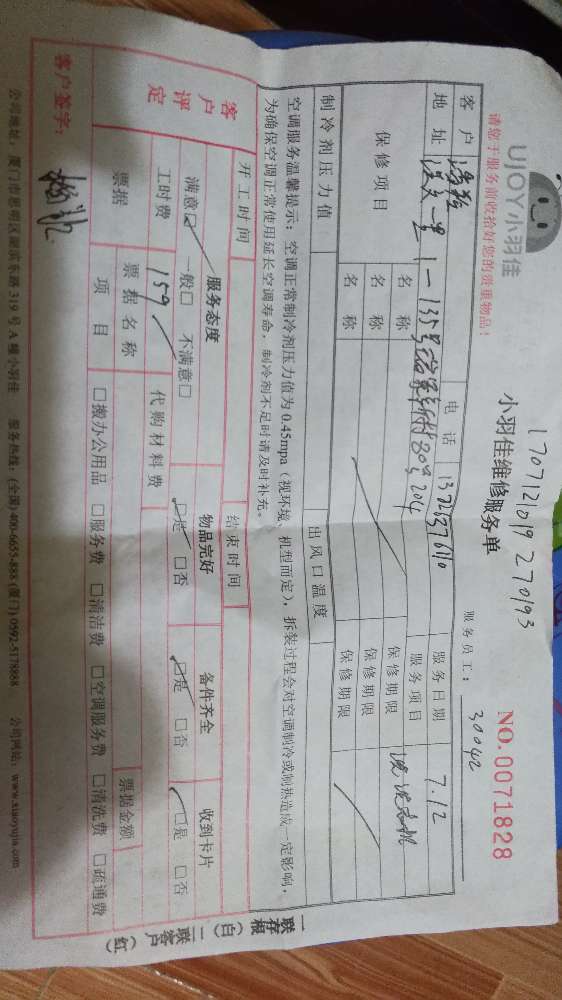 UJOY小羽佳
1707121019270193
小羽佳维修服务单
NO. 0071828
请您于服务前收拾好您的贵重物品!
服务员工: 30042
客户 电话 服务日期 7.12
地址 1-135号 204 服务项目 洗洗衣机
保修项目 名称 保修期限
名称 保修期限
名称 保修期限
制冷剂压力值 出风口温度
空调服务温馨提示:空调正常制冷剂压力值为0.45mpa(视环境、机型而定),拆装过程会对空调制冷或制热造成一定影响,
为确保空调正常使用延长空调寿命,制冷剂不足时请及时补充。
开工时间 结束时间
客户评定 服务态度 物品完好 备件齐全 收到卡片
满意□ 一般□ 不满意□ □是 □否 □是 □否 □是 □否
工时费 159 代购材料费
票据 票据名称 票据金额
项目 □搬办公用品 □服务费 □清洁费 □空调服务费 □清洗费 □疏通费
客户签字:
公司地址:厦门市思明区湖滨东路319号A幢小羽佳 服务热线:(全国)400-6655-888 (厦门) 0592-5178888 公司网站:www.xiaoyujia.com
一联存根(白) 二联客户(红)